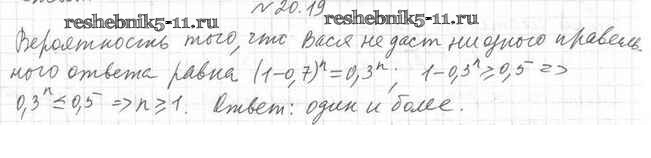 №20.19
reshebnik5-11.ru
reshebnik5-11.ru
Вероятность того, что Вася не даст ни одного правель-
ного ответа равна (1-0,7)ⁿ=0,3ⁿ; 1-0,3ⁿ≥0,5 =>
0,3ⁿ≤0,5 => n≥1. Ответ: один и более.